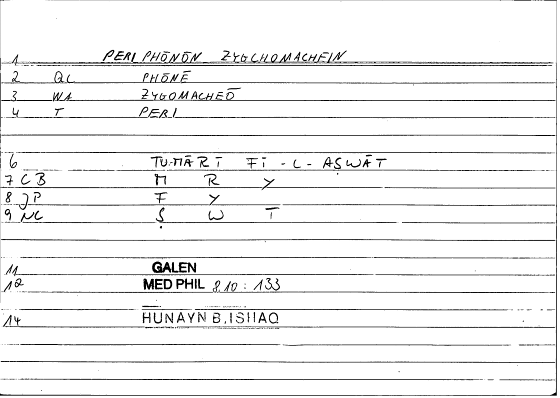 1 PERI PHŌNŌN ZYGOMACHEIN
2 QC PHŌNĒ
3 WA ZYGOMACHEŌ
4 T PERI
6 TUMĀRĪ FĪ-L-AṢWĀT
7 CB M R Y
8 JP F Y
9 NC Ṣ W T
11 GALEN
12 MED PHIL 8.10 : 133
14 HUNAYN B. ISHAQ